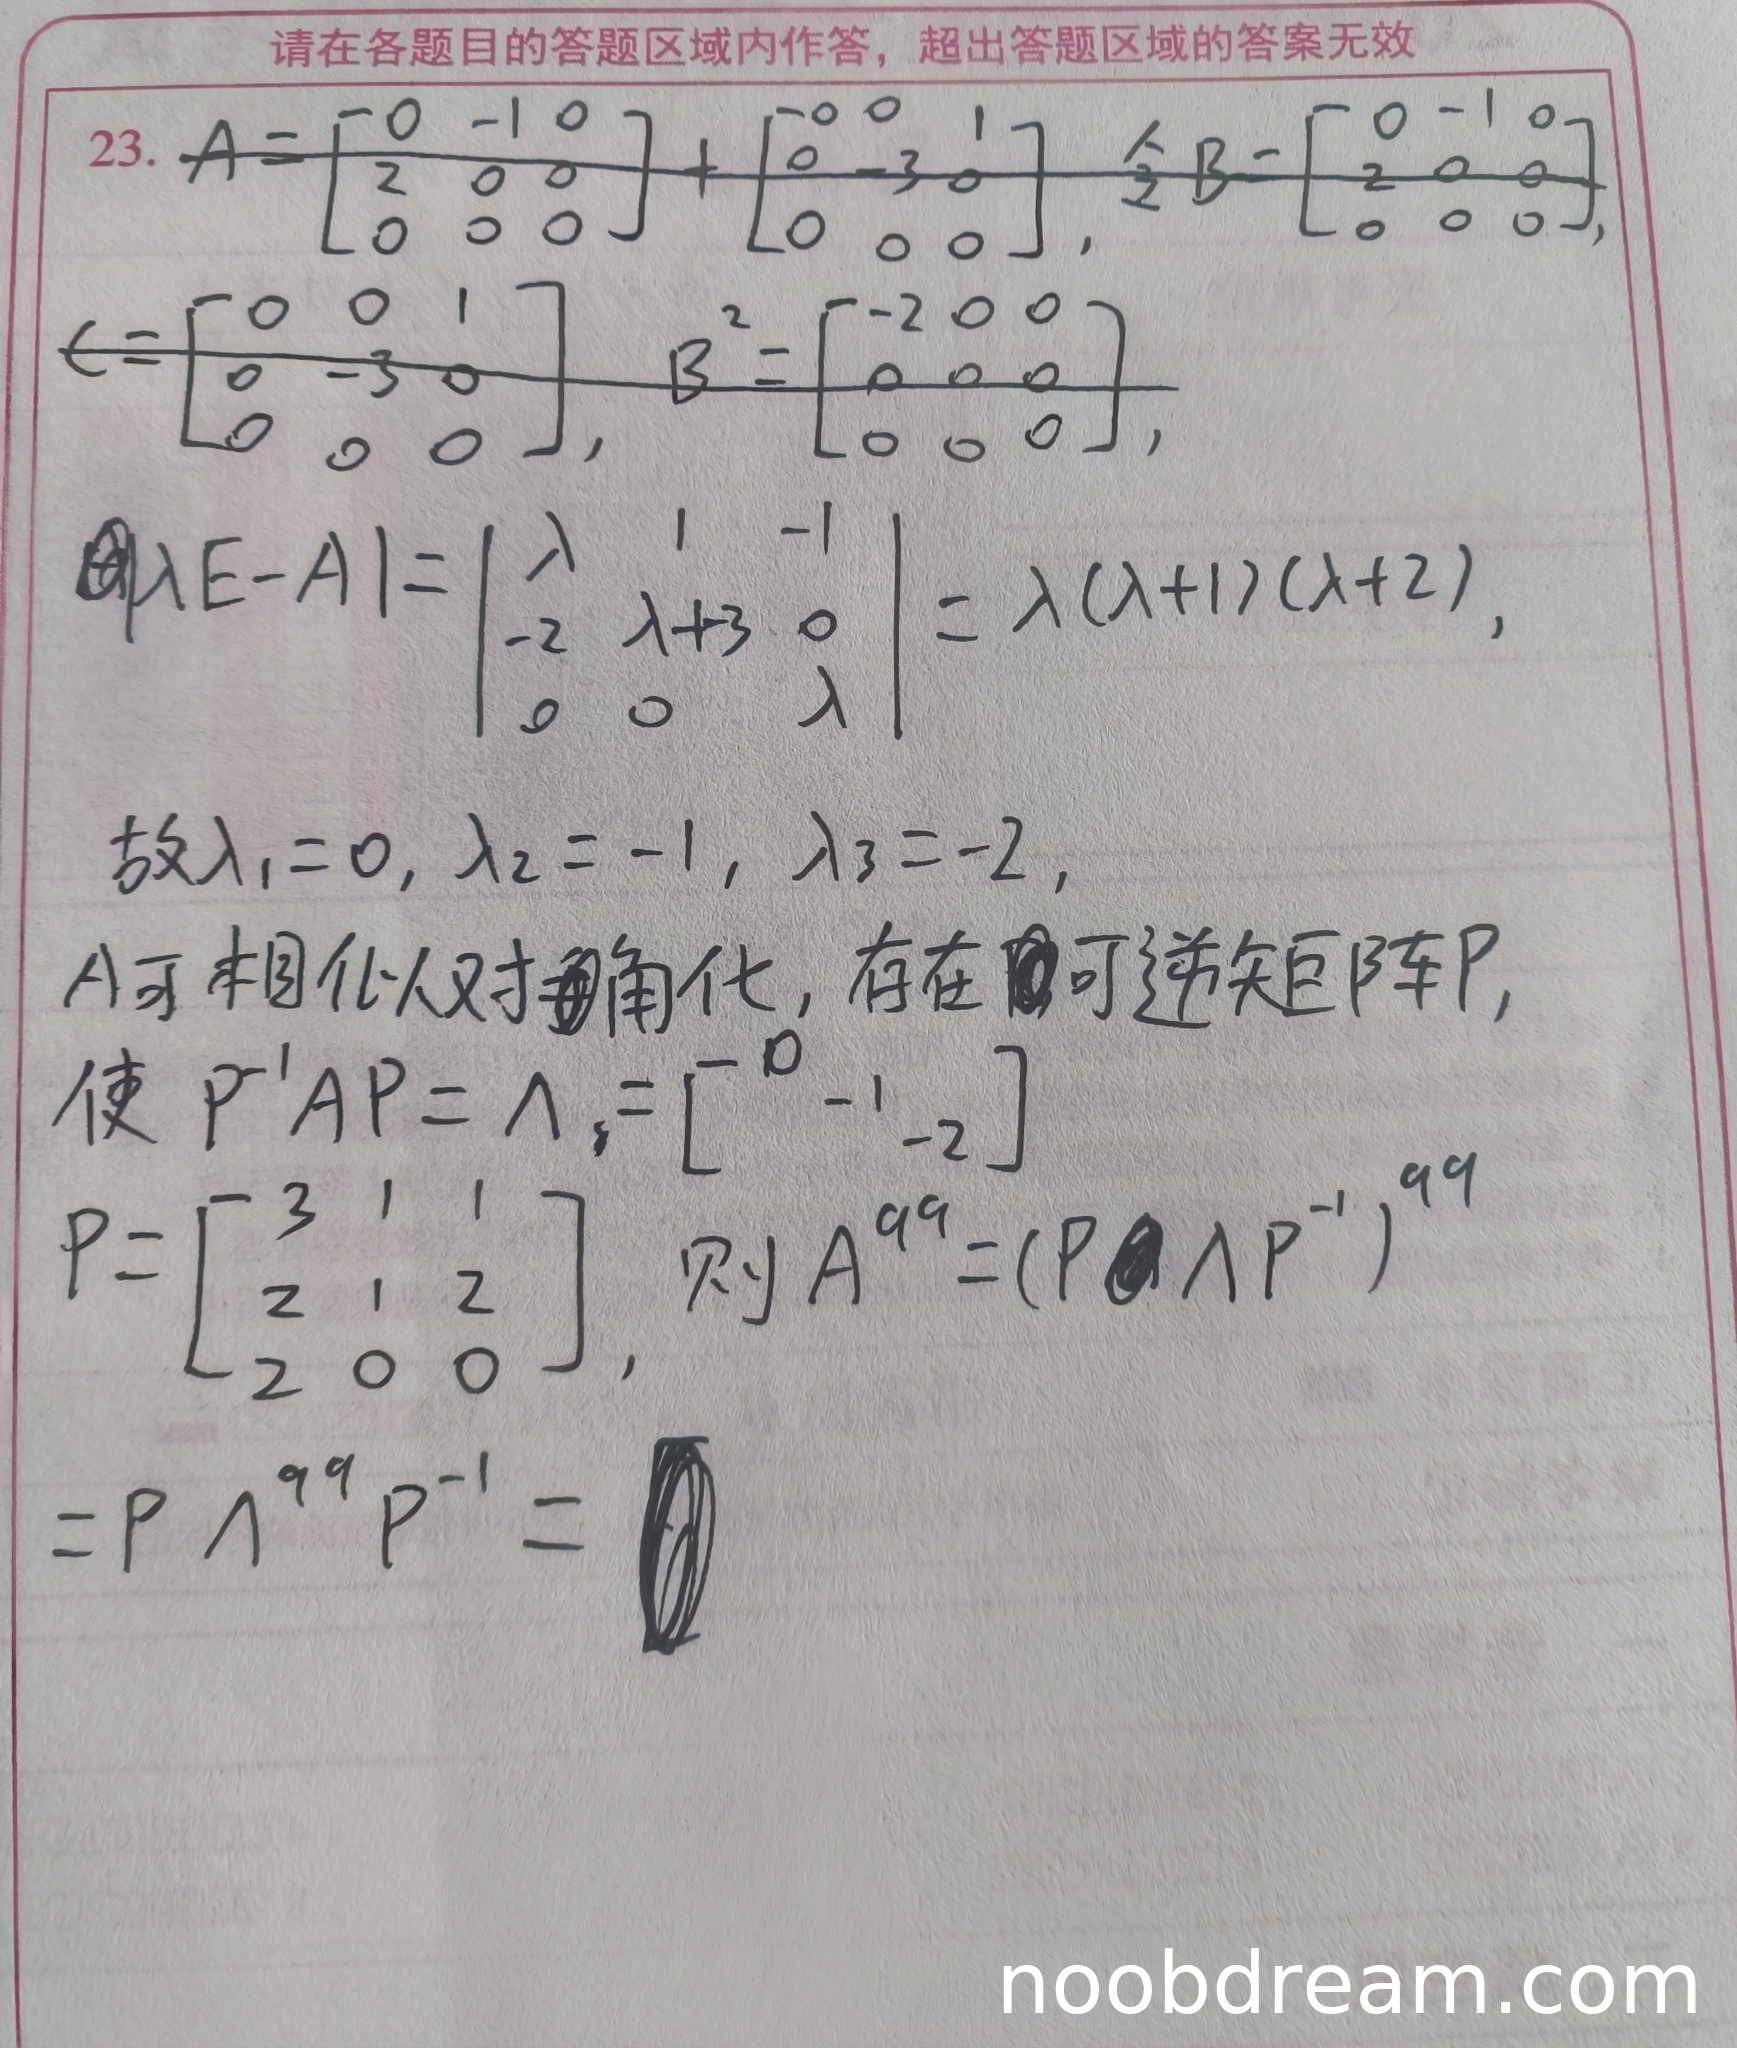 请在各题目的答题区域内作答，超出答题区域的答案无效
23. A = [0 -1 0; 2 0 0; 0 0 0] + [0 0 1; 0 -3 0; 0 0 0], 令 B = [0 -1 0; 2 0 0; 0 0 0],
C = [0 0 1; 0 -3 0; 0 0 0], B² = [-2 0 0; 0 0 0; 0 0 0],
|λE-A| = |λ 1 -1; -2 λ+3 0; 0 0 λ| = λ(λ+1)(λ+2),
故λ₁=0, λ₂=-1, λ₃=-2,
A可相似对角化, 存在可逆矩阵P,
使 P⁻¹AP = Λ, = [0 -1 -2]
P = [3 1 1; 2 1 2; 2 0 0], 则 A⁹⁹ = (PΛP⁻¹)⁹⁹
= PΛ⁹⁹P⁻¹ =
noobdream.com